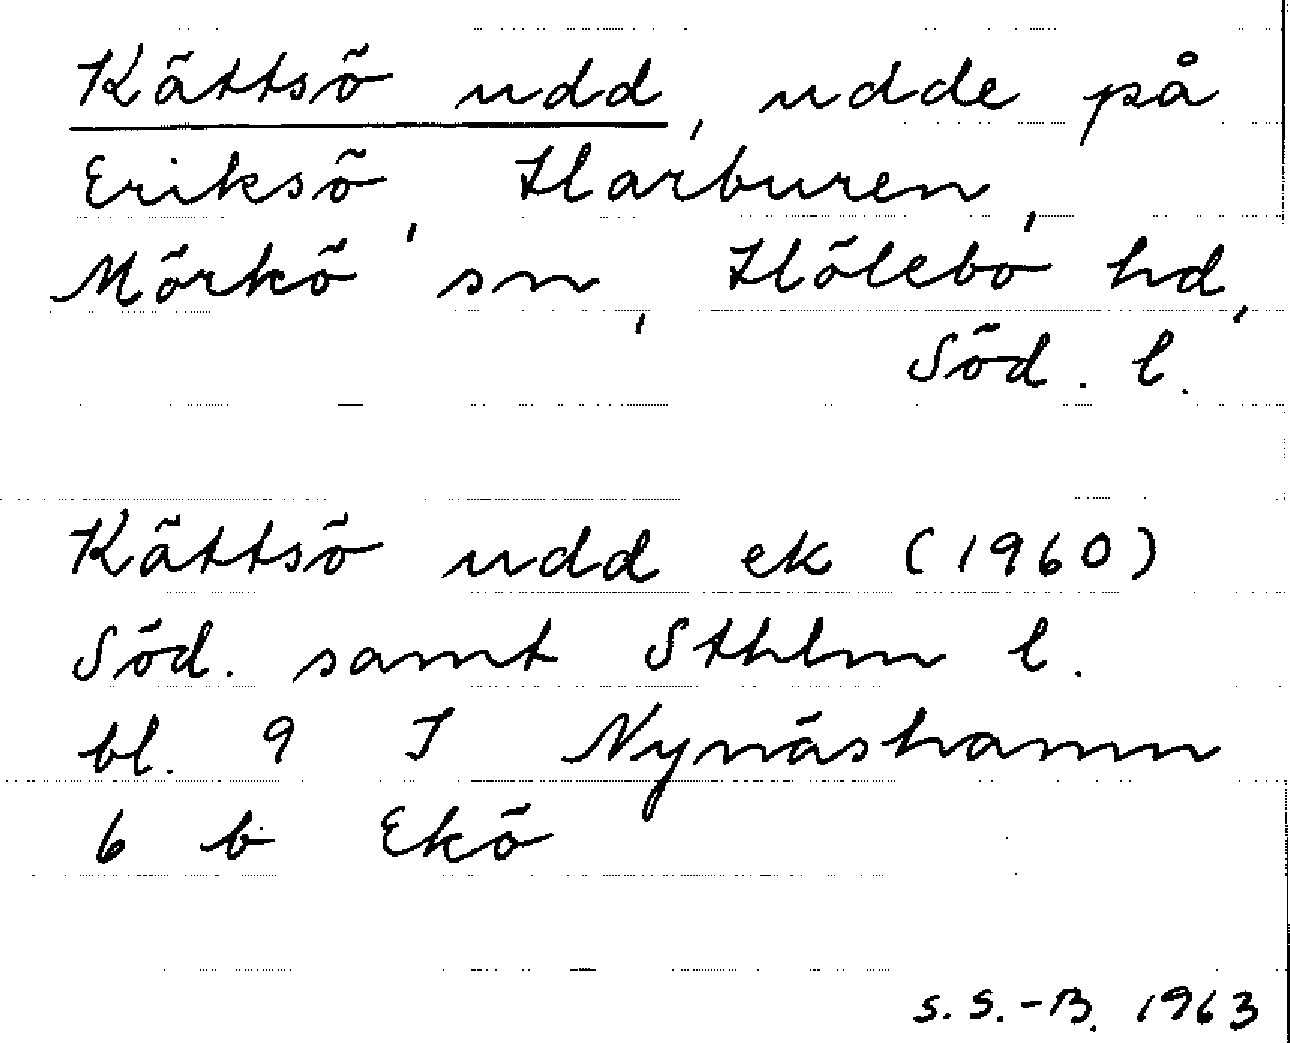 Kättsö udd, udde på
Eriksö, Harburen,
Mörkö sn, Hölebo hd,
Söd. l.
Kättsö udd ek (1960)
Söd. samt Sthlm l.
bl. 9 I Nynäshamn
6 b Ekö
S. S.-B. 1963